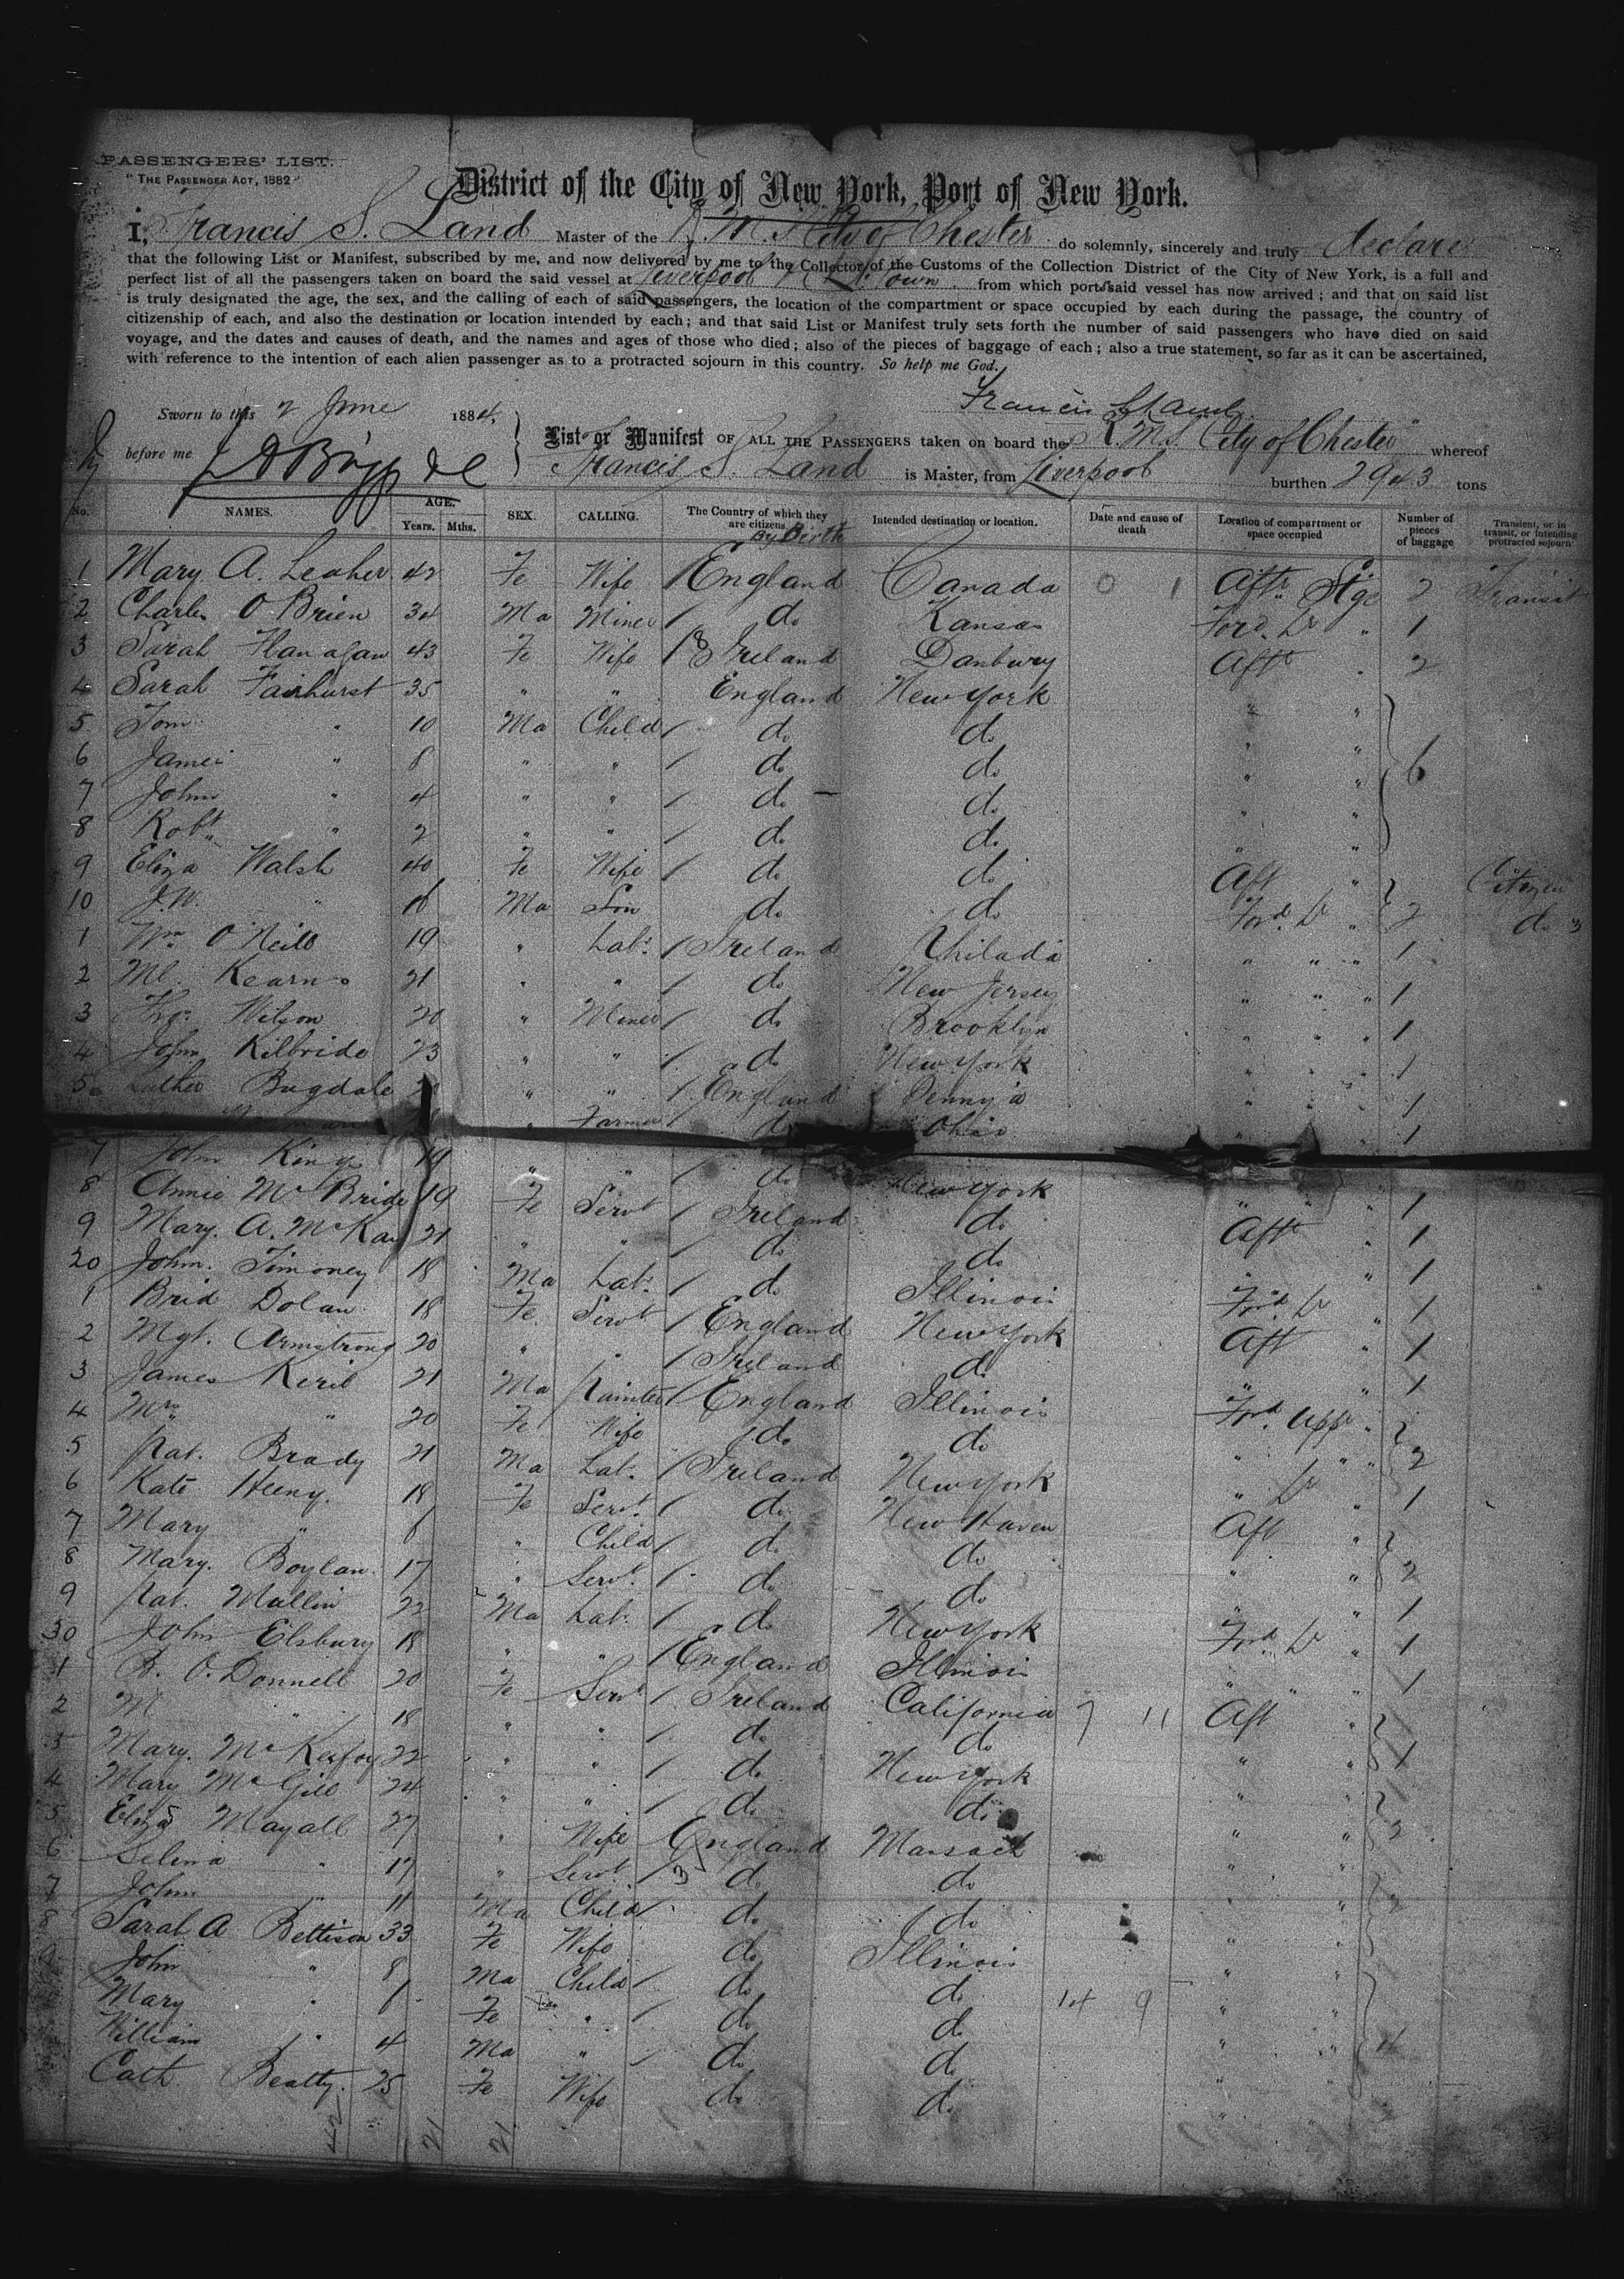 PASSENGERS' LIST.
"THE PASSENGER ACT, 1882"
District of the City of New York, Port of New York.
I, Francis S. Land Master of the R.M.S City of Chester do solemnly, sincerely and truly declare
that the following List or Manifest, subscribed by me, and now delivered by me to the Collector of the Customs of the Collection District of the City of New York, is a full and
perfect list of all the passengers taken on board the said vessel at Liverpool & Q. Town from which ports said vessel has now arrived; and that on said list
is truly designated the age, the sex, and the calling of each of said passengers, the location of the compartment or space occupied by each during the passage, the country of
citizenship of each, and also the destination or location intended by each; and that said List or Manifest truly sets forth the number of said passengers who have died on said
voyage, and the dates and causes of death, and the names and ages of those who died; also of the pieces of baggage of each; also a true statement, so far as it can be ascertained,
with reference to the intention of each alien passenger as to a protracted sojourn in this country. So help me God.
Francis S Land
Sworn to this 2 June 1884,
before me
List or Manifest OF ALL THE PASSENGERS taken on board the R.M.S. City of Chester whereof
Francis S. Land is Master, from Liverpool burthen 2943 tons
No. NAMES. AGE. Years. Mths. SEX. CALLING. The Country of which they are citizens By Birth Intended destination or location. Date and cause of death Location of compartment or space occupied Number of pieces of baggage Transient, or in transit, or intending protracted sojourn
1 Mary A. Leaher 42 Fe Wife / England Canada 0 1 Aftr Stge 2 Transit
2 Charles O Brien 34 Ma Miner / do Kansas Ford. Lr " 1
3 Sarah Flanagan 43 Fe Wife / 8 Ireland Danbury Aftr " 2
4 Sarah Fairhurst 35 " " England New York " "
5 Tom " 10 Ma Child / do do " "
6 James " 8 " " / do do " " 6
7 John " 4 " " / do do " "
8 Robt " 2 " " / do do " "
9 Eliza Walsh 40 Fe Wife / do do Aft " Citizen
10 J.W. " 16 Ma Son do do Ford. Lr " 2 do 3
1 Wm O'Neill 19 " Labr / Ireland Philada " " " 1
2 Ml. Kearns 21 " " / do New Jersey " " " 1
3 Thos. Wilson 20 " Miner / do Brooklyn " " " 1
4 John Kilbride 23 " " / do New York " " 1
5 Luther Bugdale " " / England Penny'a " " 1
" Farmer / do Ohio " " 1
7 John King 19 " " / do New York " " " 1
8 Annie McBride 19 Fe Servt / Ireland do Aftr " 1
9 Mary. A. McKay 21 " " / do do " " 1
20 John. Timoney 18 Ma Labr / do Illinois Ford. Lr " 1
1 Brid Dolan 18 Fe. Servt / England New York Aft " 1
2 Mgt. Armstrong 20 " " / Ireland do " " 1
3 James Keril 21 Ma Painter / England Illinois Ford. Uppr "
4 Mrs " 20 Fe Wife / do do " " " 2
5 Pat. Brady 21 Ma Labr / Ireland New York " Lr " 1
6 Kate Heeny. 18 Fe Servt / do New Haven Aft "
7 Mary " 6 " Child / do do " " 2
8 Mary. Boylan. 17 " Servt / do do " " 1
9 Pat. Mallin 22 Ma Labr / do New York Ford Lr " 1
30 John Elsbury 18 " " / England Illinois " " " 1
31 B. O'Donnell 20 Fe Servt / Ireland California 7 11 Aft "
2 M " 18 " " / do do " " 1
3 Mary. McKeefoy 22 " " / do New York " "
4 Mary McGill 24 " " / do do " " 2
5 Eliza Mayall 27 " Wife England Massach " "
6 Selina " 17 " Servt / 3 do do " " 2
7 John " 11 Ma Child / do do " "
8 Sarah A Bettison 33 Fe Wife do Illinois " "
9 John " 8 Ma Child / do do 14 9 " "
Mary " 6 Fe " / do do " " 4
William " 4 Ma " / do do " "
Cath. Beatty. 25 Fe Wife do do
42 21 21